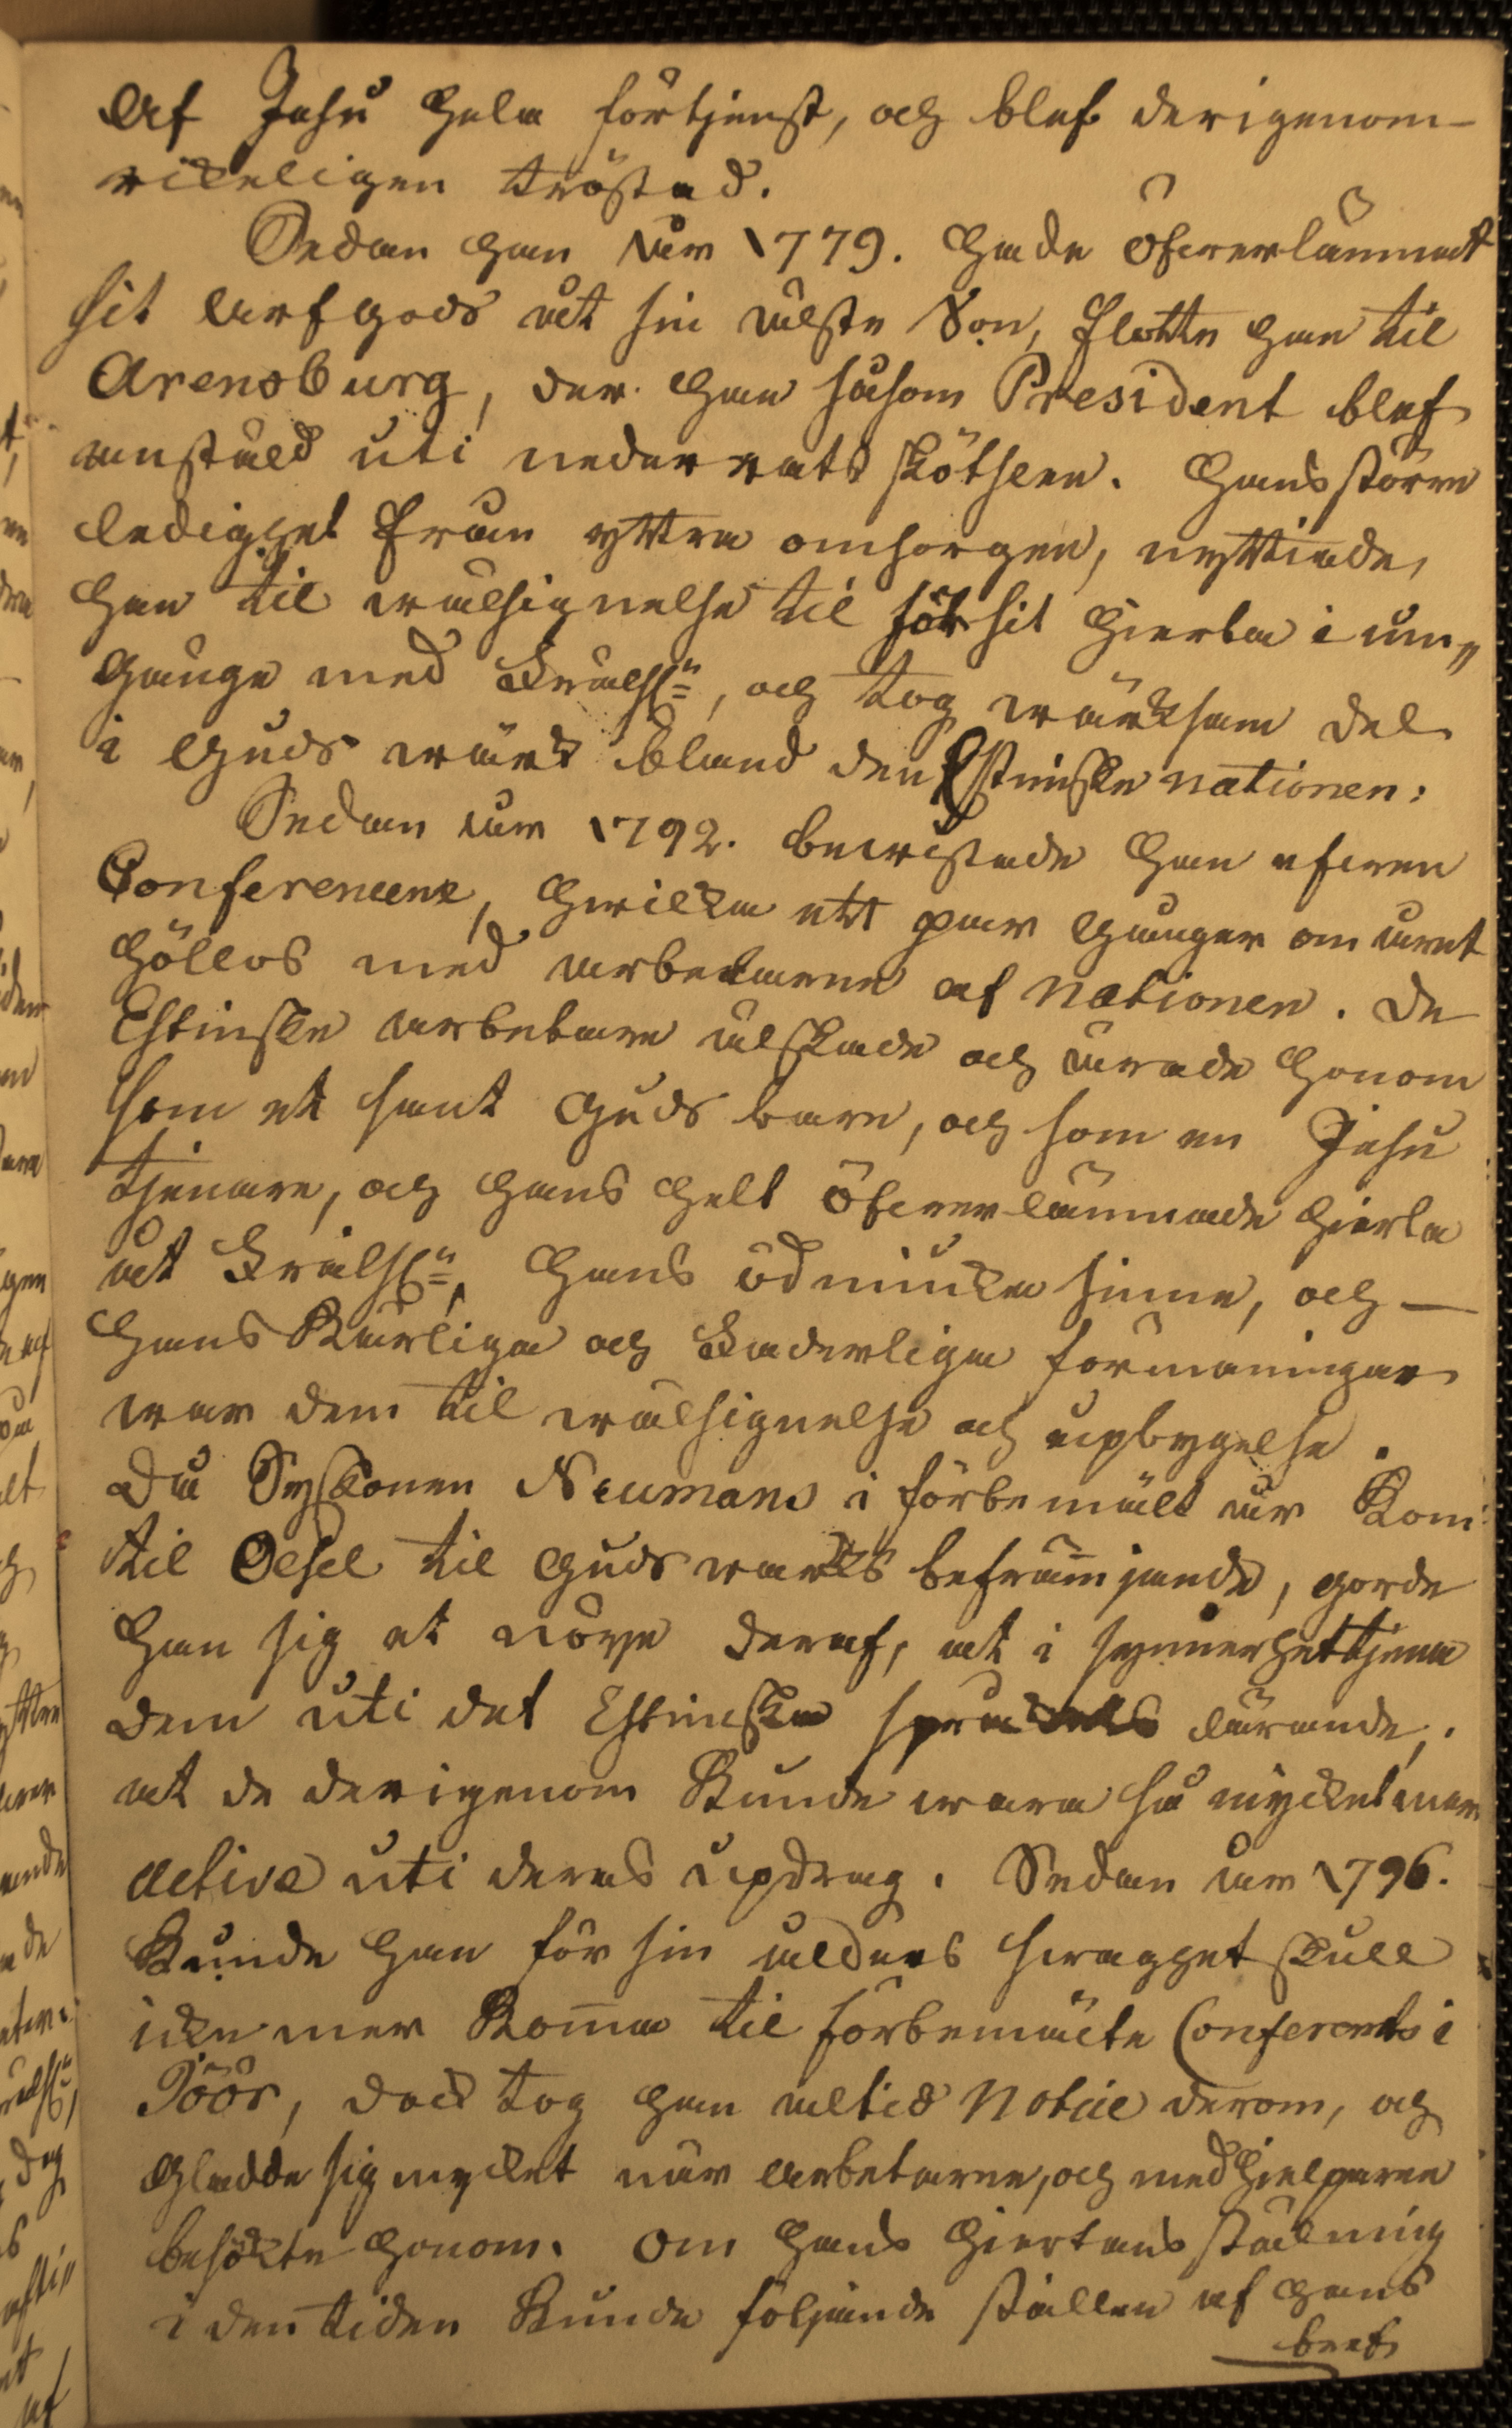 Af Jesu hela förtjenst, och blef derigenom-
rikeligen tröstad.
Sedan han År 1779. hade öfwerlämnat
sit arfgods åt sin älste Son, flötte han til
Arensburg, der han såsom President blef
anstäld uti nederrats skötslen. Hans större
ledighet från yttra omsorgen, nyttiade,
han til wälsignelse til för sit hierta i um„
gänge med Frälsn=, och tog wärksam del
i Guds wärk bland den Estniske nationen:
Sedan år 1792. bewistade han äfwen
Conferencene, hwilka ett par gånger om året
höllos med arbetarne af nationen. De
Estniske arbetare älskade och ärade honom
som et sant Guds barn, och som en Jesu
tjenare, och hans helt öfwerlämnade hierta
åt Frälsn=, hans ödmiuka sinne, och —
hans kärliga och faderliga förmaningar
war dem til wälsignelse och upbygelse.
Då Syskonen Neumans i förbemält år kom
til Oesel til Guds wärks befrämjande, gorde
han sig et nöye deraf, at i synnerhet tjena
dem uti det Estniska språkets lärande,
at de derigenom kunde wara så mycket mer
active uti deras updrag. Sedan år 1796.
kunde han för sin ålders swaghet skull
icke mer komma til förbemälte Conferents i
Töör, dock tog han altid Notice derom, och
gladde sig mycket när arbetarne, och medhielparne
besökte honom. Om hans hiertans stälning
i den tiden kunde följande ställen af hans
bref